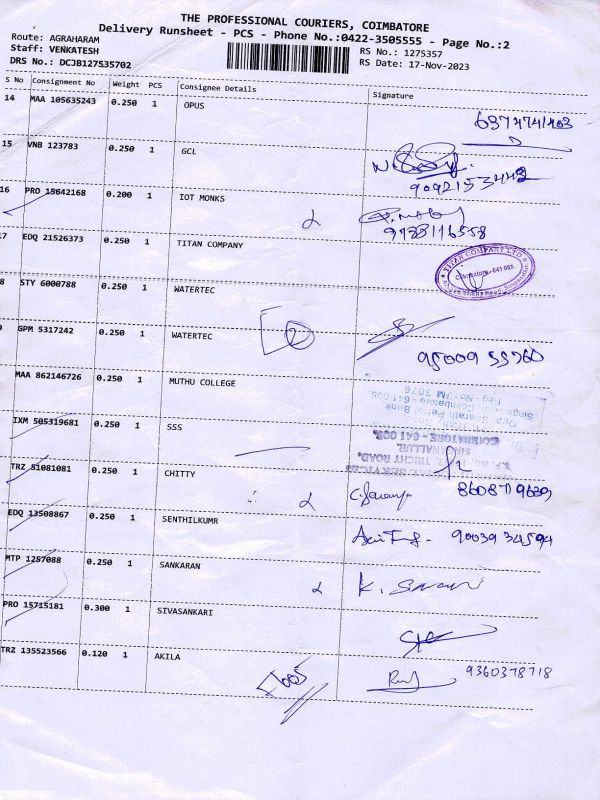 THE PROFESSIONAL COURIERS, COIMBATORE
Delivery Runsheet - PCS - Phone No.:0422-3505555 - Page No.:2
Route: AGRAHARAM
Staff: VENKATESH
RS No.: 1275357
DRS No.: DCJB127535702
RS Date: 17-Nov-2023
S No Consignment No Weight PCS Consignee Details Signature
14 MAA 105635243 0.250 1 OPUS
15 VNB 123783 0.250 1 GCL
9092153442
16 PRO 15642168 0.200 1 IOT MONKS
9733116558
17 EDQ 21526373 0.250 1 TITAN COMPANY
TITAN COMPANY LTD
Coimbatore - 641 005.
8 STY 6000788 0.250 1 WATERTEC
9 GPM 5317242 0.250 1 WATERTEC
95009 55760
MAA 862146726 0.250 1 MUTHU COLLEGE
IXM 505319681 0.250 1 SSS
COIMBATORE - 641 005.
TRICHY ROAD,
TRZ 51081081 0.250 1 CHITTY
8608719639
EDQ 13508867 0.250 1 SENTHILKUMR
90039 34594
MTP 1257088 0.250 1 SANKARAN
PRO 15715181 0.300 1 SIVASANKARI
TRZ 135523566 0.120 1 AKILA
9360378718